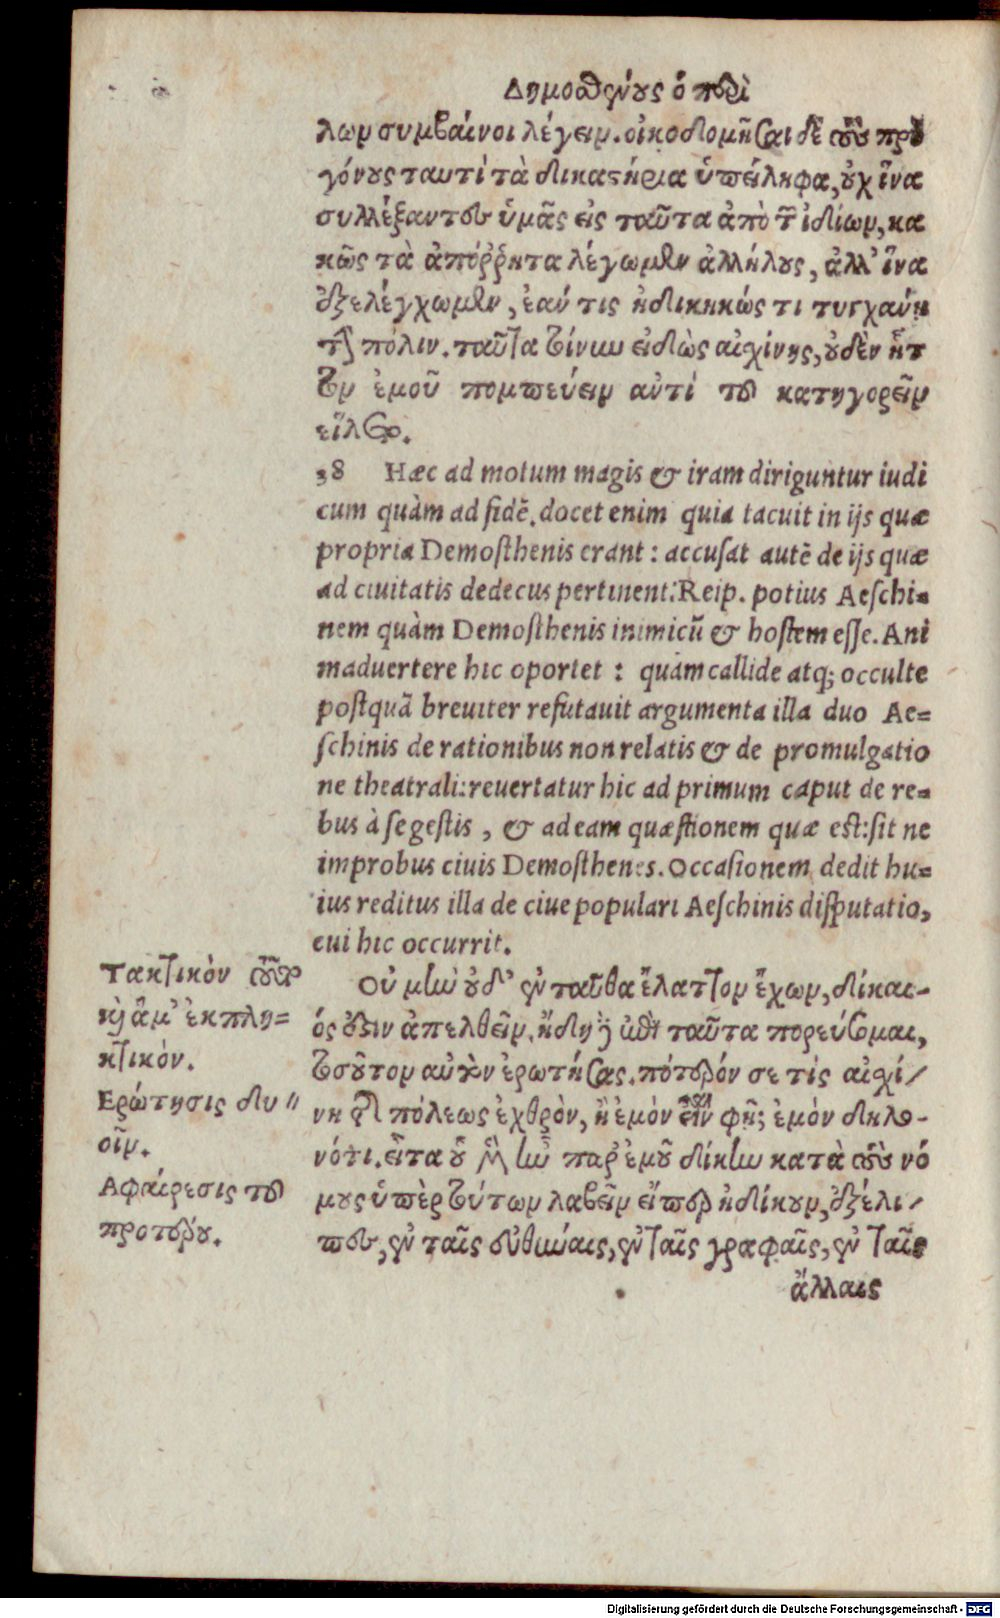 Δημοσθένους ὁ περὶ
λων συμβαίνοι λέγειν. οἰκοδομῆσαι δὲ τοὺς προ
γόνους ταυτὶ τὰ δικαστήρια ὑπείληφα, οὐχ ἵνα
συλλέξαντες ὑμᾶς εἰς ταῦτα ἀπὸ τῶν ἰδίων, κα
κῶς τὰ ἀπόῤῥητα λέγωμεν ἀλλήλους, ἀλλ' ἵνα
ἐξελέγχωμεν, ἐάν τις ἠδικηκώς τι τυγχάνῃ
τὴν πόλιν. ταῦτα τοίνυν εἰδὼς αἰσχίνης, οὐδὲν ἧτ
τον ἐμοῦ πομπεύειν ἀντὶ τοῦ κατηγορεῖν
εἵλετο.
38 Hæc ad motum magis & iram diriguntur iudi
cum quàm ad fidē. docet enim quia tacuit in ijs quæ
propria Demosthenis erant : accusat autē de ijs quæ
ad ciuitatis dedecus pertinent: Reip. potius Aeschi=
nem quàm Demosthenis inimicū & hostem esse. Ani
maduertere hic oportet : quàm callide atq; occulte
postquā breuiter refutauit argumenta illa duo Ae=
schinis de rationibus non relatis & de promulgatio
ne theatrali: reuertatur hic ad primum caput de re=
bus à se gestis , & ad eam quæstionem quæ est: sit ne
improbus ciuis Demosthenes. Occasionem dedit hu=
ius reditus illa de ciue populari Aeschinis disputatio,
cui hic occurrit.
Τακτικὸν
καὶ ἅμ' ἐκπλη=
κτικὸν.
Ερώτησις δυ〃
οῖν.
Αφαίρεσις τοῦ
προτέρου.
Οὐ μὴν οὐδ' ἐνταῦθα ἔλαττον ἔχων, δίκαι-
ός ἐστιν ἀπελθεῖν. ἤδη δ' ἐπὶ ταῦτα πορεύσομαι,
τοσοῦτον αὐτὸν ἐρωτήσας. πότερόν σε τίς αἰσχί/
νη τῆς πόλεως ἐχθρὸν, ἢ ἐμὸν εἶναι φῇ; ἐμὸν δηλο-
νότι. εἶτα οὗ μὲν ἦν παρ' ἐμοῦ δίκην κατὰ τοὺς νό
μους ὑπὲρ τούτων λαβεῖν εἴπερ ἠδίκουν, ἐξέλι/
πες, ἐν ταῖς εὐθύναις, ἐν ταῖς γραφαῖς, ἐν ταῖς
ἄλλαις
Digitalisierung gefördert durch die Deutsche Forschungsgemeinschaft - DFG